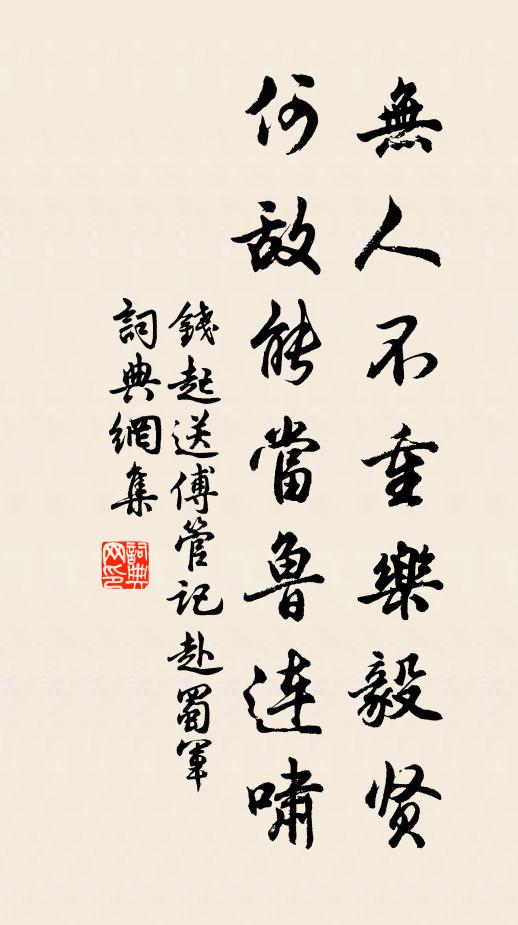 無人不重樂毅贤
何敌能當魯连嘯
錢起送傅管记赴蜀軍
詞典網集
詞典网印